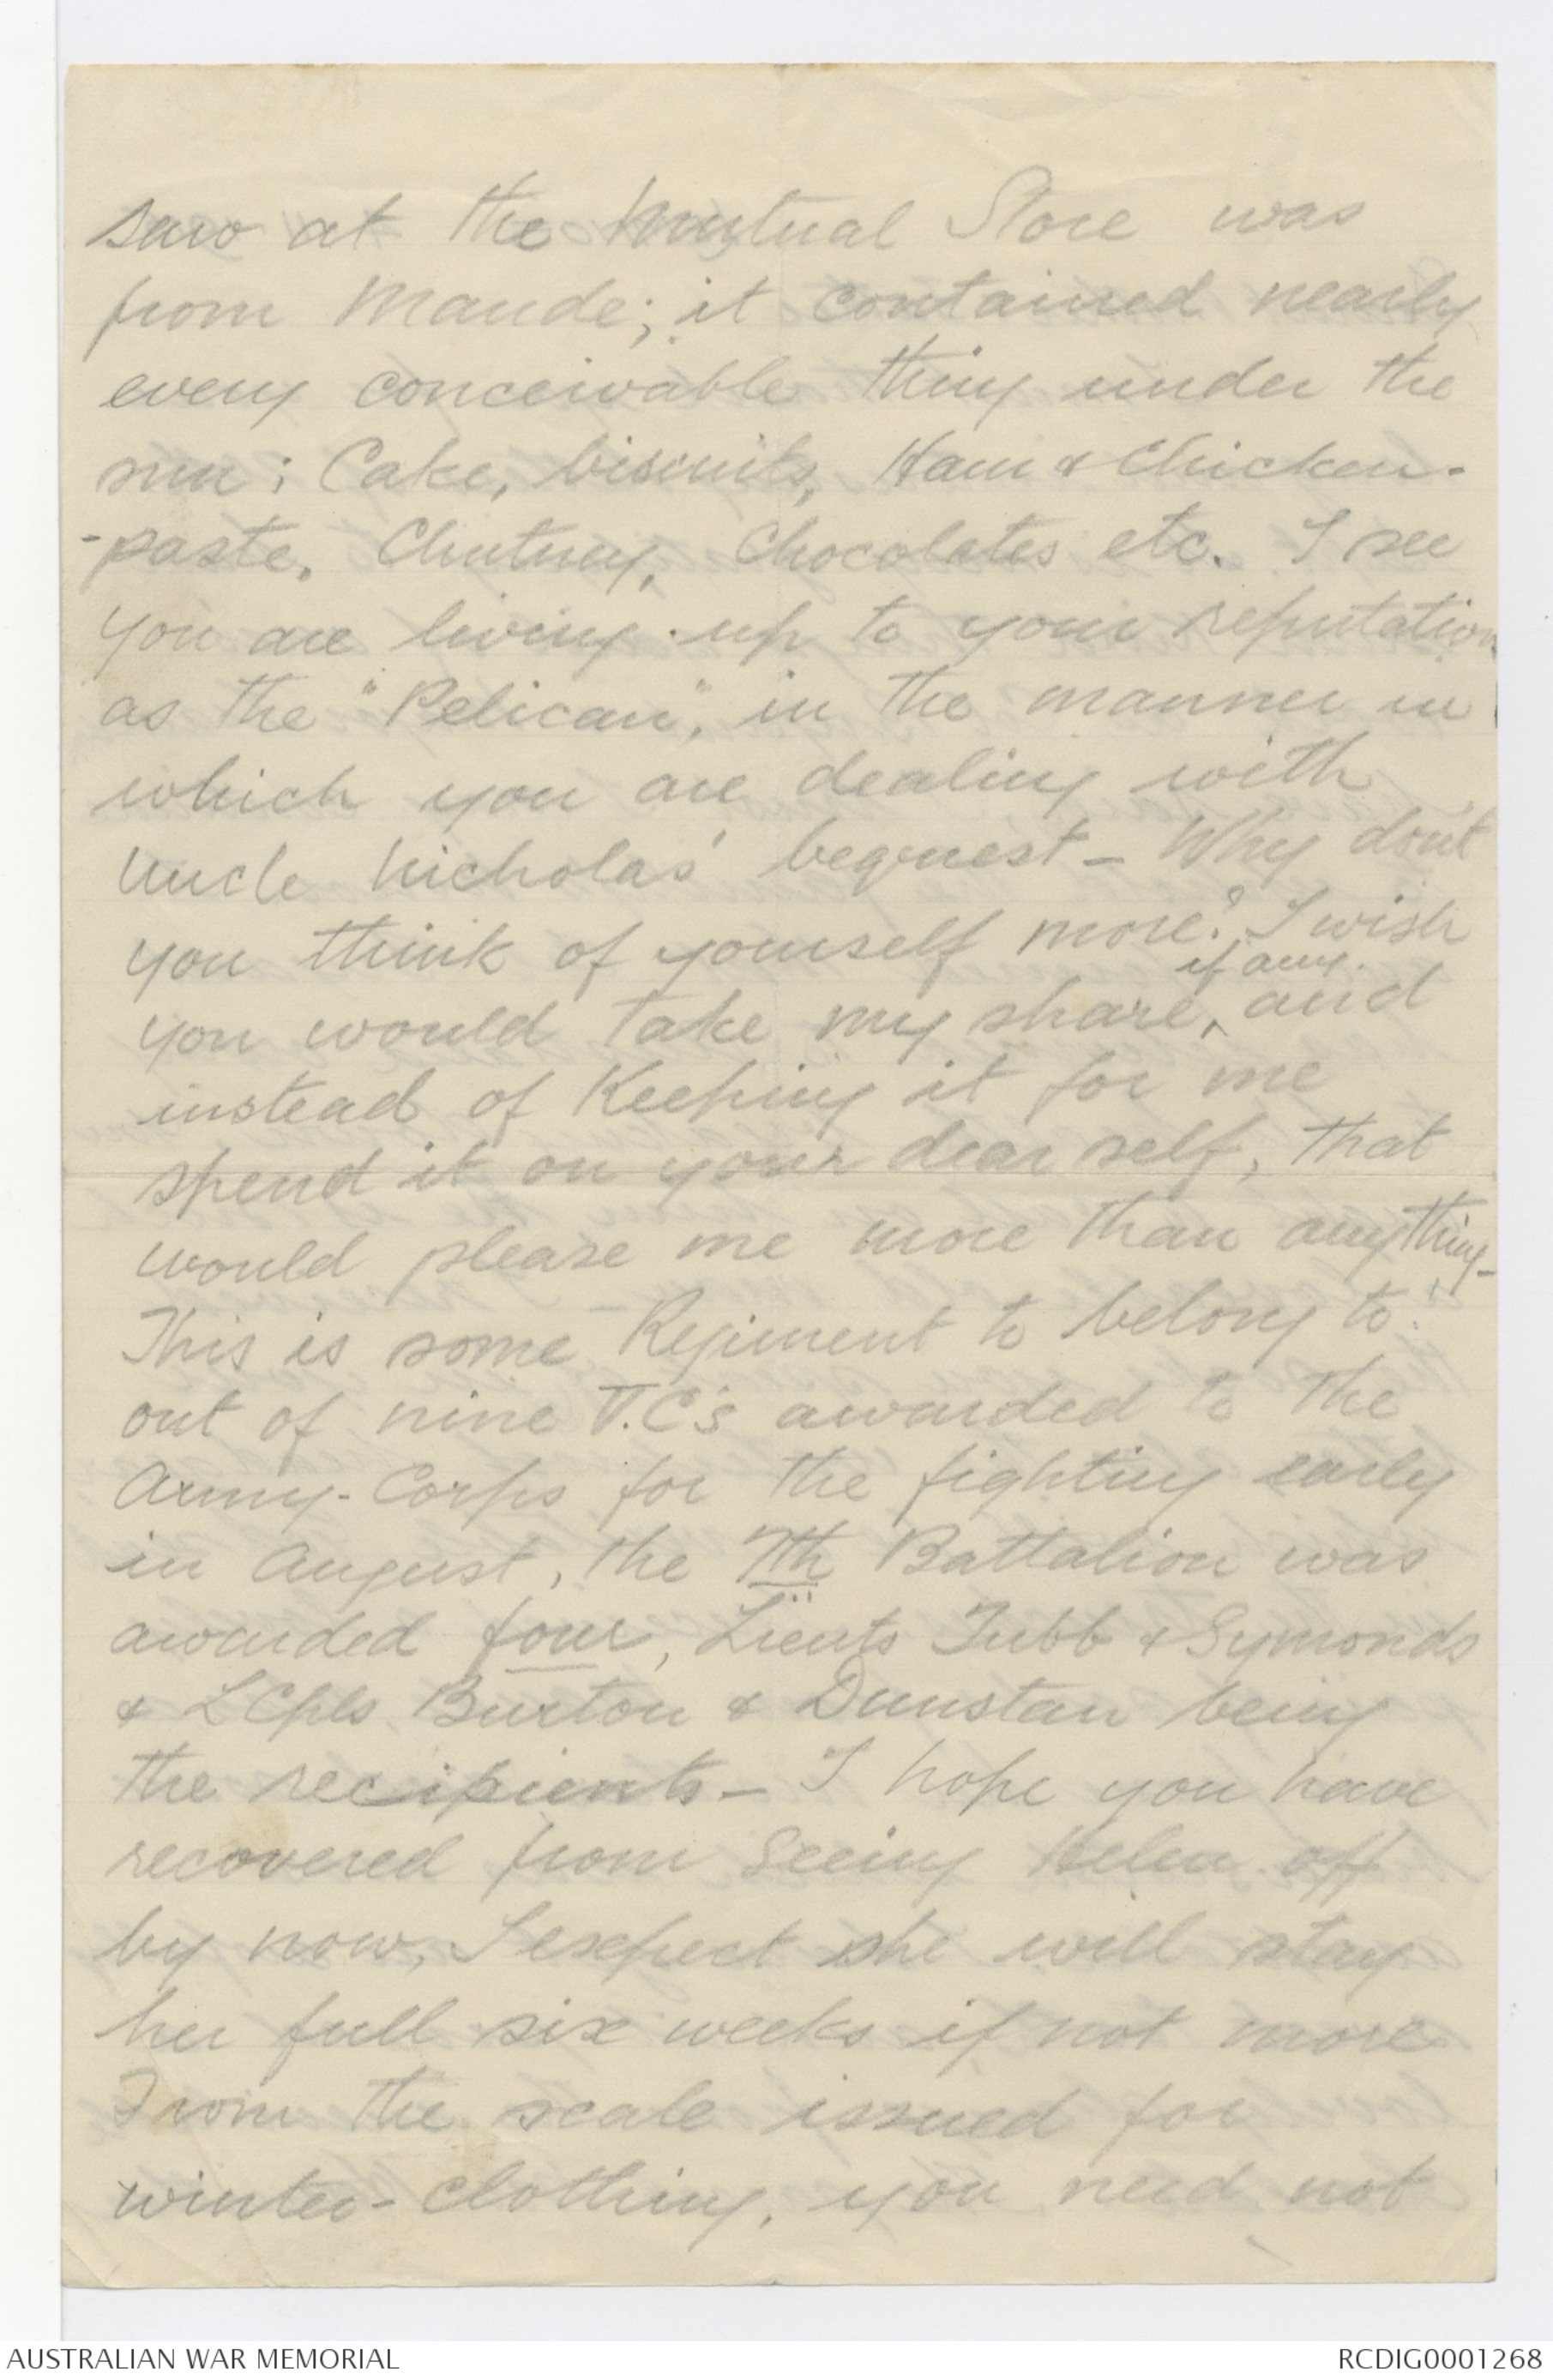 saw at the Mutual Store was
from Maude; it contained nearly
every conceivable thing under the
sun; Cake, biscuits, Ham & Chicken-
-paste, Chutney, Chocolates etc. I see
you are living up to your reputation
as the "Pelican", in the manner in
which you are dealing with
Uncle Nicholas' bequest - Why don't
you think of yourself more? I wish
if any.
you would take my share, ^ and
instead of keeping it for me
spend it on your dear self, that
would please me more than anything -
This is some Regiment to belong to!
out of nine V.C's awarded to the
Army-Corps for the fighting early
in August, the 7th Battalion was
awarded four, Lieuts Tubb & Symonds
& LCpls Burton & Dunstan being
the recipients - I hope you have
recovered from seeing Helen off
by now, I expect she will stay
her full six weeks if not more
From the scale issued for
winter-clothing, you need not
AUSTRALIAN WAR MEMORIAL
RCDIG0001268